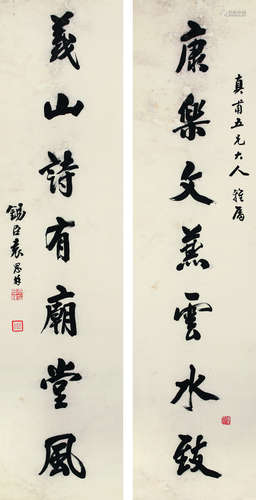 康樂文兼雲水致
真甫五兄大人雅屬
義山詩有廟堂風
錫臣袁思韠